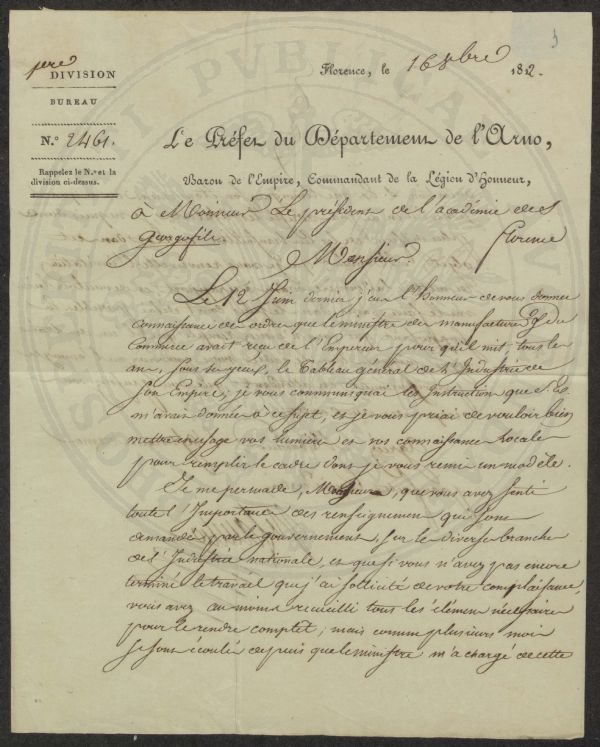 5
1ere DIVISION
BUREAU
N.° 2461.
Rappelez le N.° et la
division ci-dessus.
Florence, le 16 8bre 1812.
Le Préfet du Département de l'Arno,
Baron de l'Empire, Commandant de la Légion d'Honneur,
à Monsieur Le président de l'académie des
Georgofili
Florence
Monsieur
Le 12 Juin dernier j'eus l'Honneur de vous donner
connaissance de ordre que le ministre des manufactures & du
Commerce avait reçu de l'Empereur pour qu'il mit, tous les
ans, sous ses yeux, le Tableau général de l'Industrie de
son Empire; je vous communiquai les Instruction que S. Ex.
m'avait données à ce sujet, et je vous priai de vouloir bien
mettre en usage vos lumières et vos connaissances locales
pour remplir le cadre dont je vous remis un modèle.
Je me persuade, Monsieur, que vous avez senti
toute l'Importance des renseignemens qui sont
demandés par le gouvernement, sur les diverses branches
de l'Industrie nationale, et que si vous n'avez pas encore
terminé le travail que j'ai sollicité de votre complaisance,
vous avez au moins recueilli tous les élémens nécessaires
pour le rendre complet; mais comme plusieurs mois
se sont écoulés depuis que le ministre m'a chargé de cette